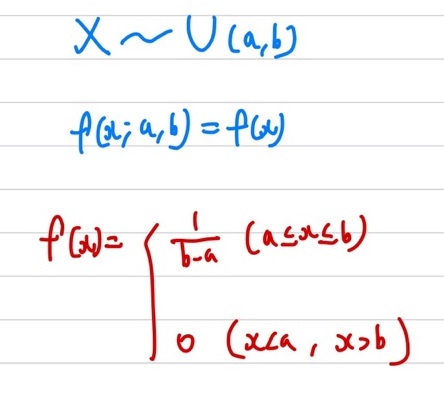 X ~ U(a,b)
f(x; a, b) = f(x)
f(x) = { 1/(b-a) (a≤x≤b)
0 (x<a , x>b)